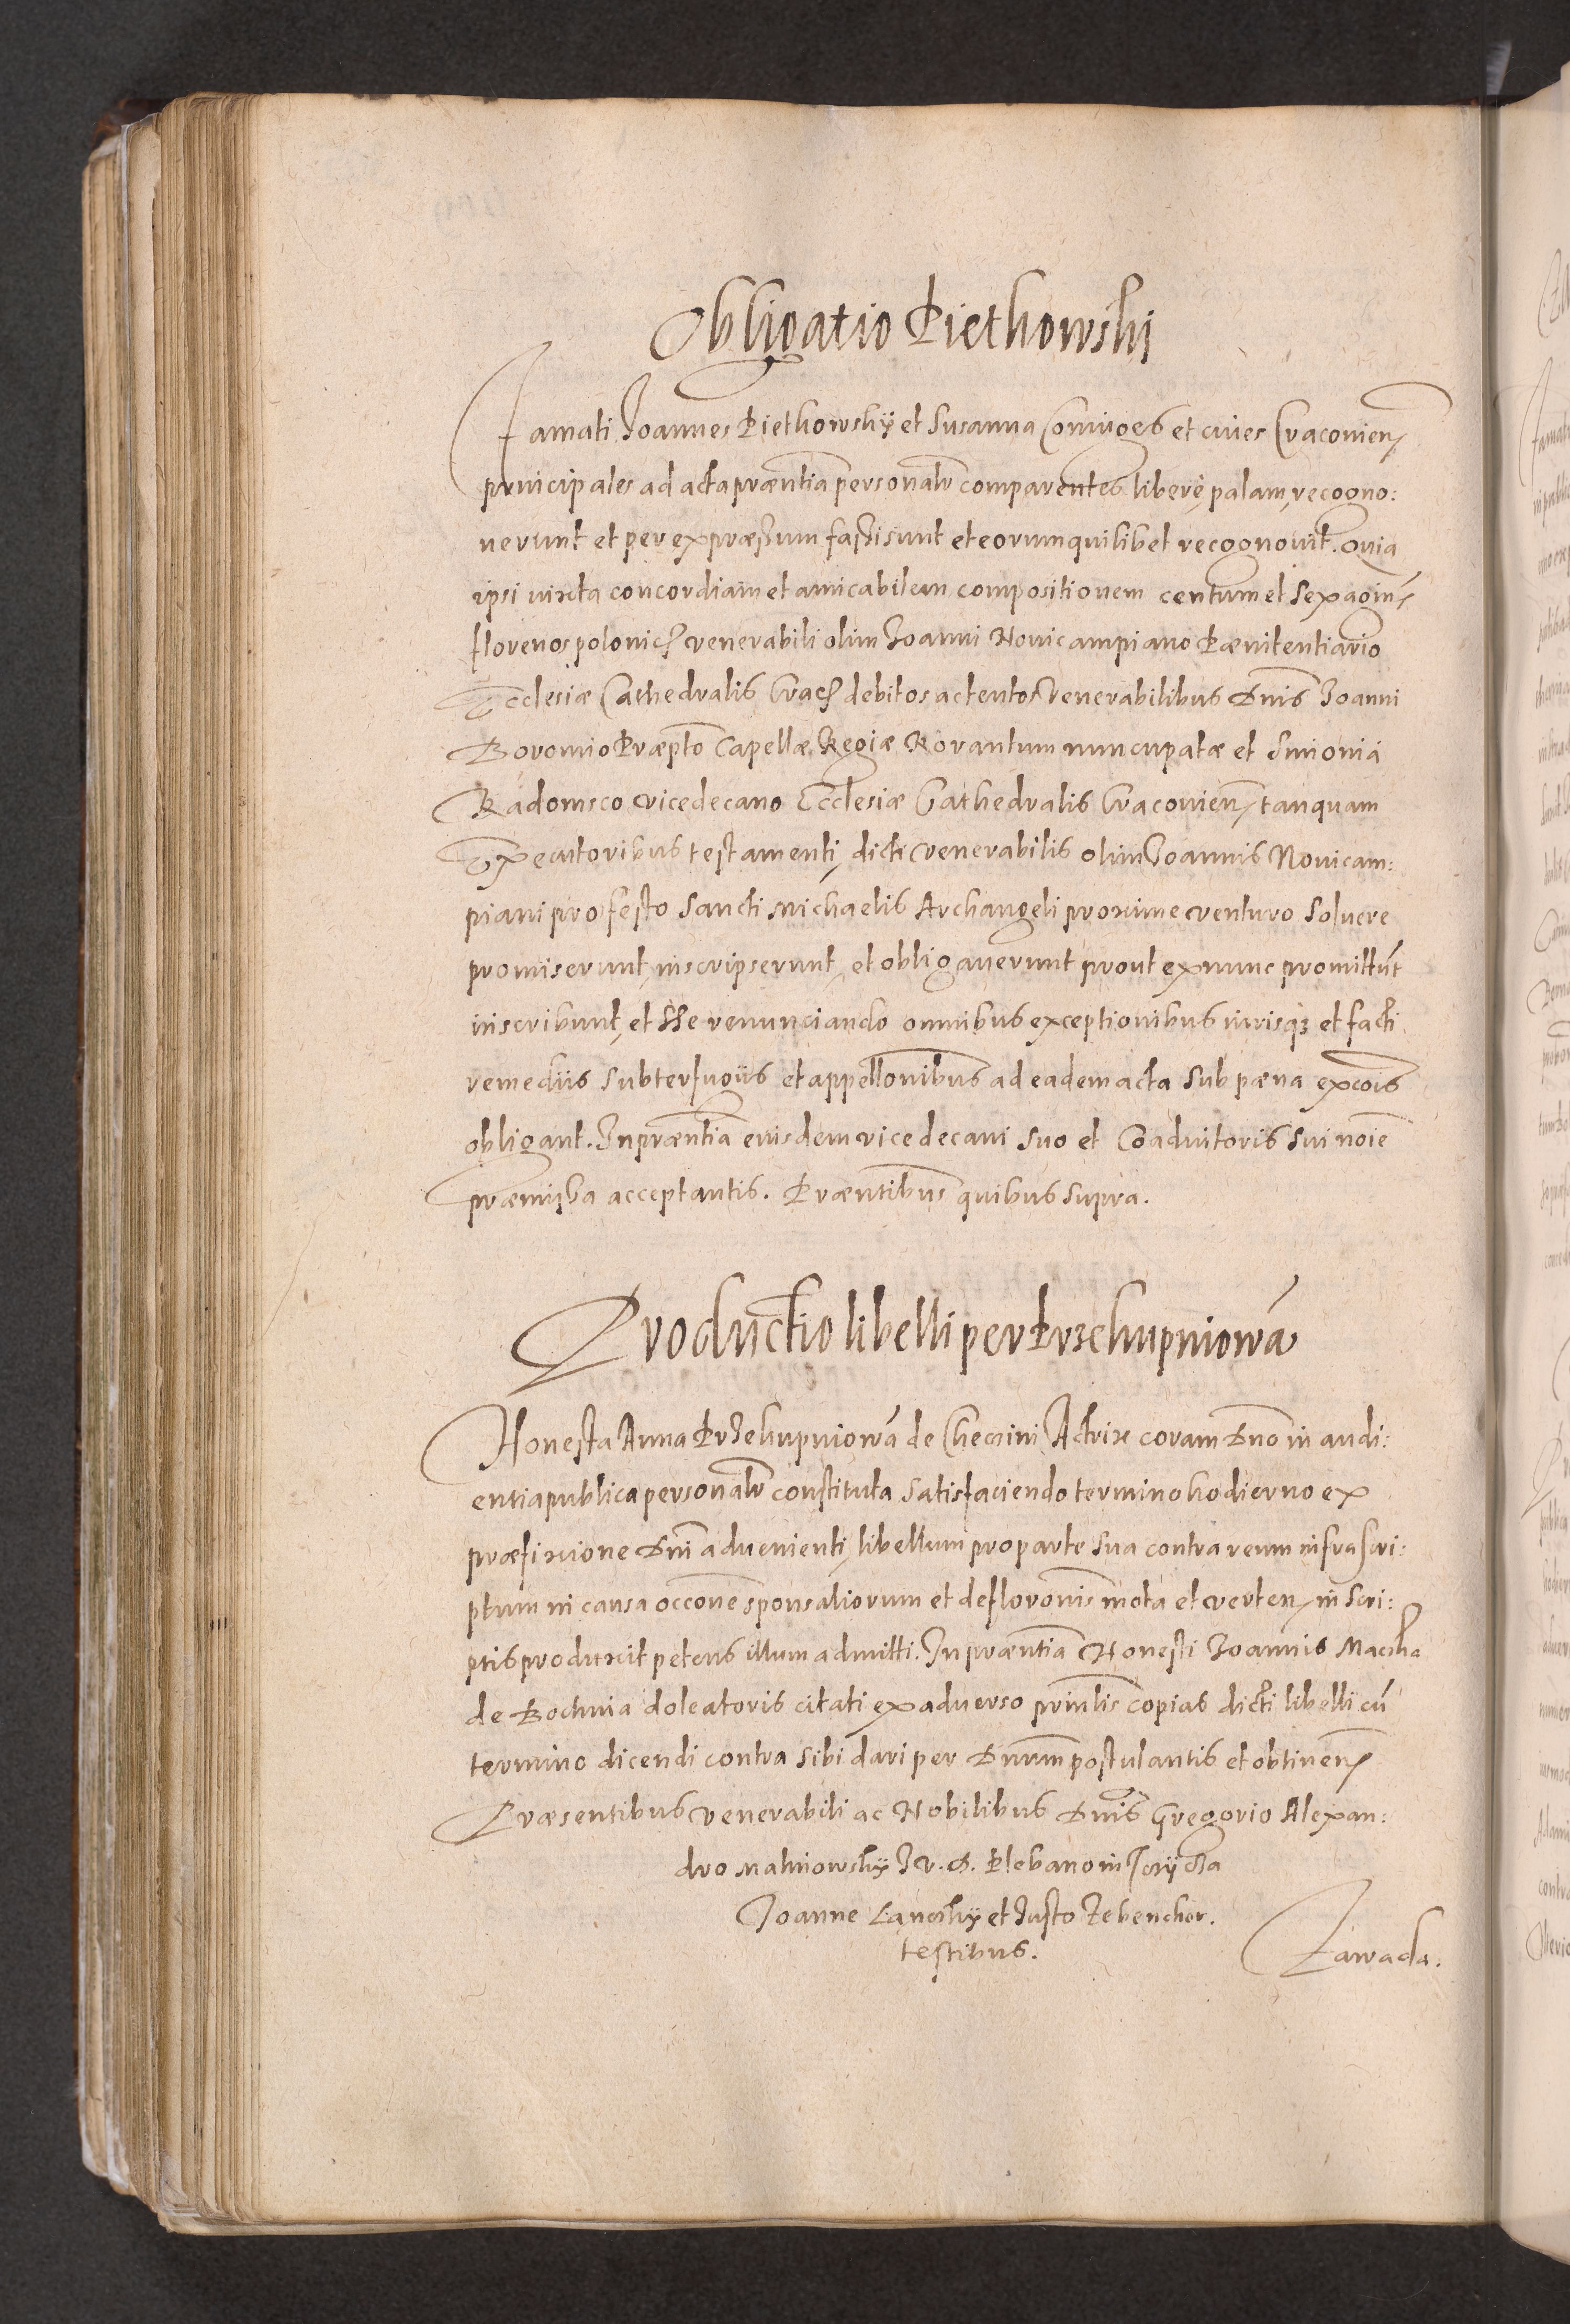 Obligatio Piethowski
Famati Joannes Piethowskÿ et Susanna Coniuges et ciues Cracouien̄
principales ad acta præntia personalr̄ comparentes liberè, palam, recogno:
uerunt et per expræssum fassi sunt et eorum quilibet recognouit. Quia
ipsi iuxta concordiam et amicabilem compositionem centum et sexagin̄
florenos polonicꝭ venerabili olim Joanni Nouicampiano Pænitentiario
Ecclesiæ Cathedralis Cracꝭ debitos ac tentos Venerabilibus Dnis Joanni
Boromio Præpto Capellæ Regiæ Rorantum nuncupatæ et Simoni á
Radomsco vicedecano Ecclesiæ Cathedralis Cracouien̄ tanquam
Executoribus testamenti, dicti venerabilis olim Joannis Nouicam:
piani pro festo Sancti Michaelis Archangeli proxime venturo soluere
promiserunt, inscripserunt, et obligauerunt prout ex nunc promittūt
inscribunt, et sse renunciando omnibus exceptionibus iurisqꝫ et facti
remediis subterfugiis et appellonibus ad eadem acta sub pæna excoīs
obligant. In præntia eiusdem vicedecani suo et Coadiutoris sui noīe
præmissa acceptantis. Præntibus quibus supra.
Productio libelli per Przekupniowā
Honesta Anna Przekupniowā de Checzini Actrix coram Dno in audi:
entia publica personalr̄ constituta satisfaciendo termino hodierno ex
præfixione Dni aduenienti, libellum pro parte sua contra reum infrascri:
ptum in causa occone sponsaliorum et defloronis mota et verten̄ in scri:
ptis produxit petens illum admitti. In præntia Honesti Joannis
de Bochnia doleatoris citati ex aduerso prinlis copias dicti libelli cū
termino dicendi contra sibi dari per Dnum postulantis et obtinen̄
Præsentibus venerabili ac Nobilibus Dnis Gregorio Alexan:
dro J. V. D. Plebano in
Joanne et Justo
testibus.
Zawada.